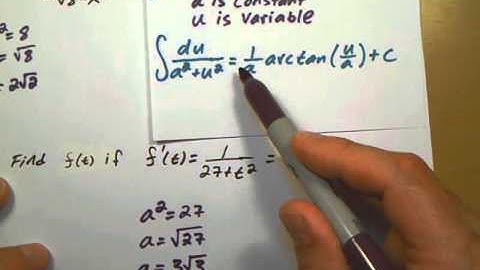 a² = 8
= √8
= 2√2
a is constant
u is variable
∫ du/(a²+u²) = 1/a arctan(u/a) + C
Find f(t) if f'(t) = 1/(27+t²) =
a² = 27
a = √27
a = 3√3